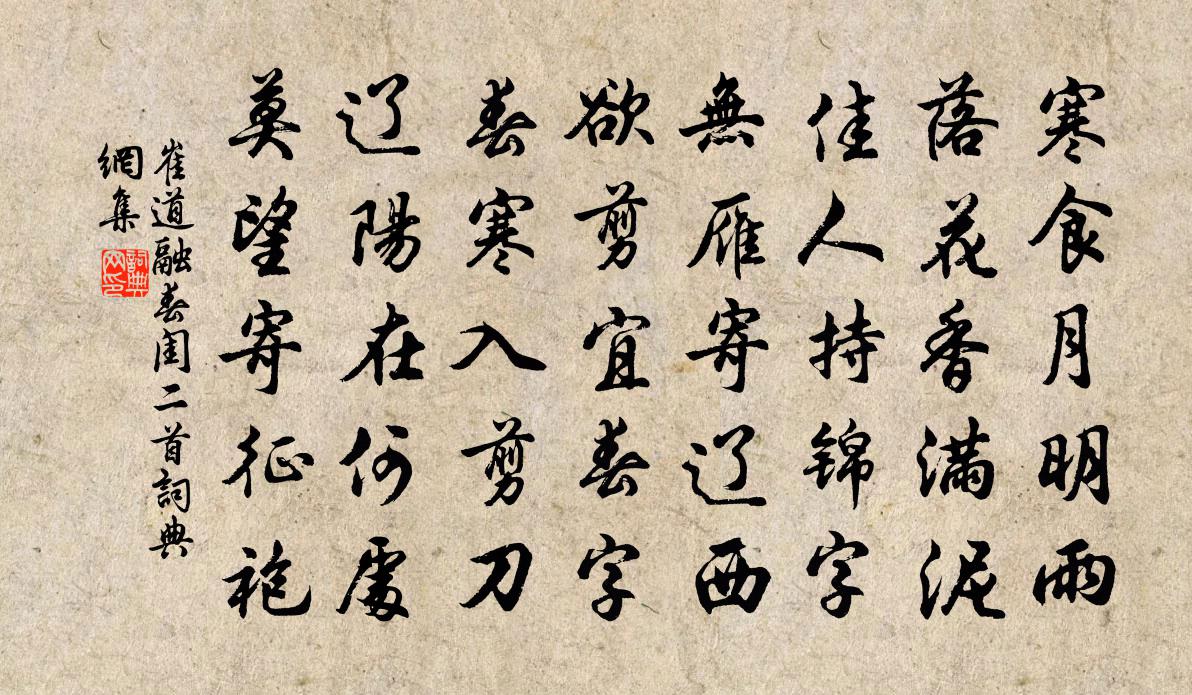 寒食月明雨
落花香满泥
佳人持锦字
無雁寄辽西
欲剪宜春字
春寒入剪刀
辽陽在何處
莫望寄征袍
崔道融春闺二首詞典
網集
詞典网印